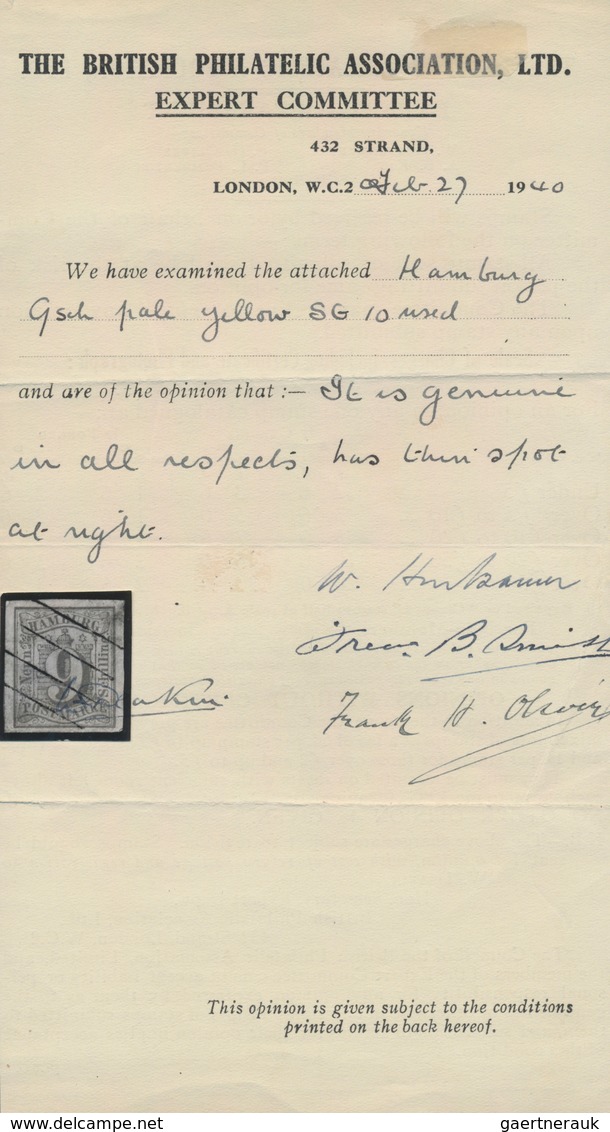 THE BRITISH PHILATELIC ASSOCIATION, LTD.
EXPERT COMMITTEE
432 STRAND,
LONDON, W.C.2 Feb 27 1940
We have examined the attached Hamburg
9sch pale yellow SG 10 used
and are of the opinion that :— It is genuine
in all respects, has thin spot
at right.
W.
B. Smith
Frank H.
HAMBURG
Neun
9
Schilling
POSTMARKE
This opinion is given subject to the conditions
printed on the back hereof.
www.delcampe.net
gaertnerauk